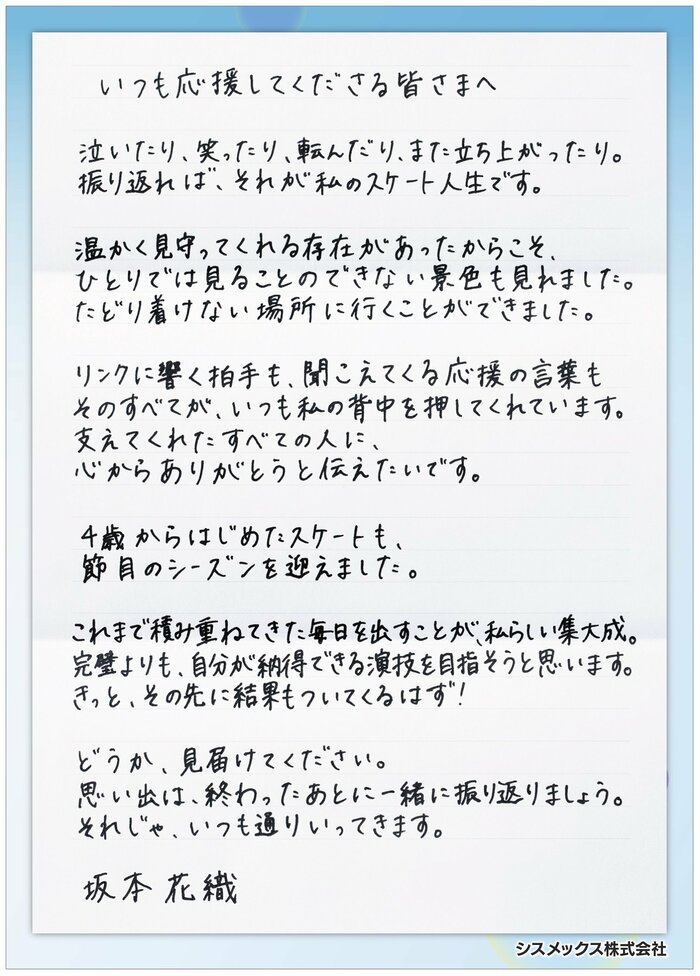 いつも応援してくださる皆さまへ
泣いたり、笑ったり、転んだり、また立ち上がったり。
振り返れば、それが私のスケート人生です。
温かく見守ってくれる存在があったからこそ、
ひとりでは見ることのできない景色も見れました。
たどり着けない場所に行くことができました。
リンクに響く拍手も、聞こえてくる応援の言葉も
そのすべてが、いつも私の背中を押してくれています。
支えてくれたすべての人に、
心からありがとうと伝えたいです。
4歳からはじめたスケートも、
節目のシーズンを迎えました。
これまで積み重ねてきた毎日を出すことが、私らしい集大成。
完璧よりも、自分が納得できる演技を目指そうと思います。
きっと、その先に結果もついてくるはず!
どうか、見届けてください。
思い出は、終わったあとに一緒に振り返りましょう。
それじゃ、いつも通りいってきます。
坂本花織
シスメックス株式会社